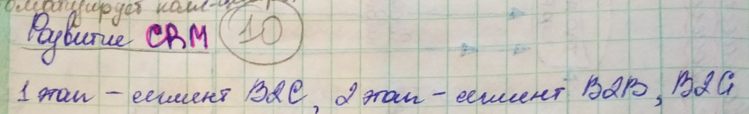 Развитие CRM 10
1 этап – сегмент B2C, 2 этап – сегмент B2B, B2G